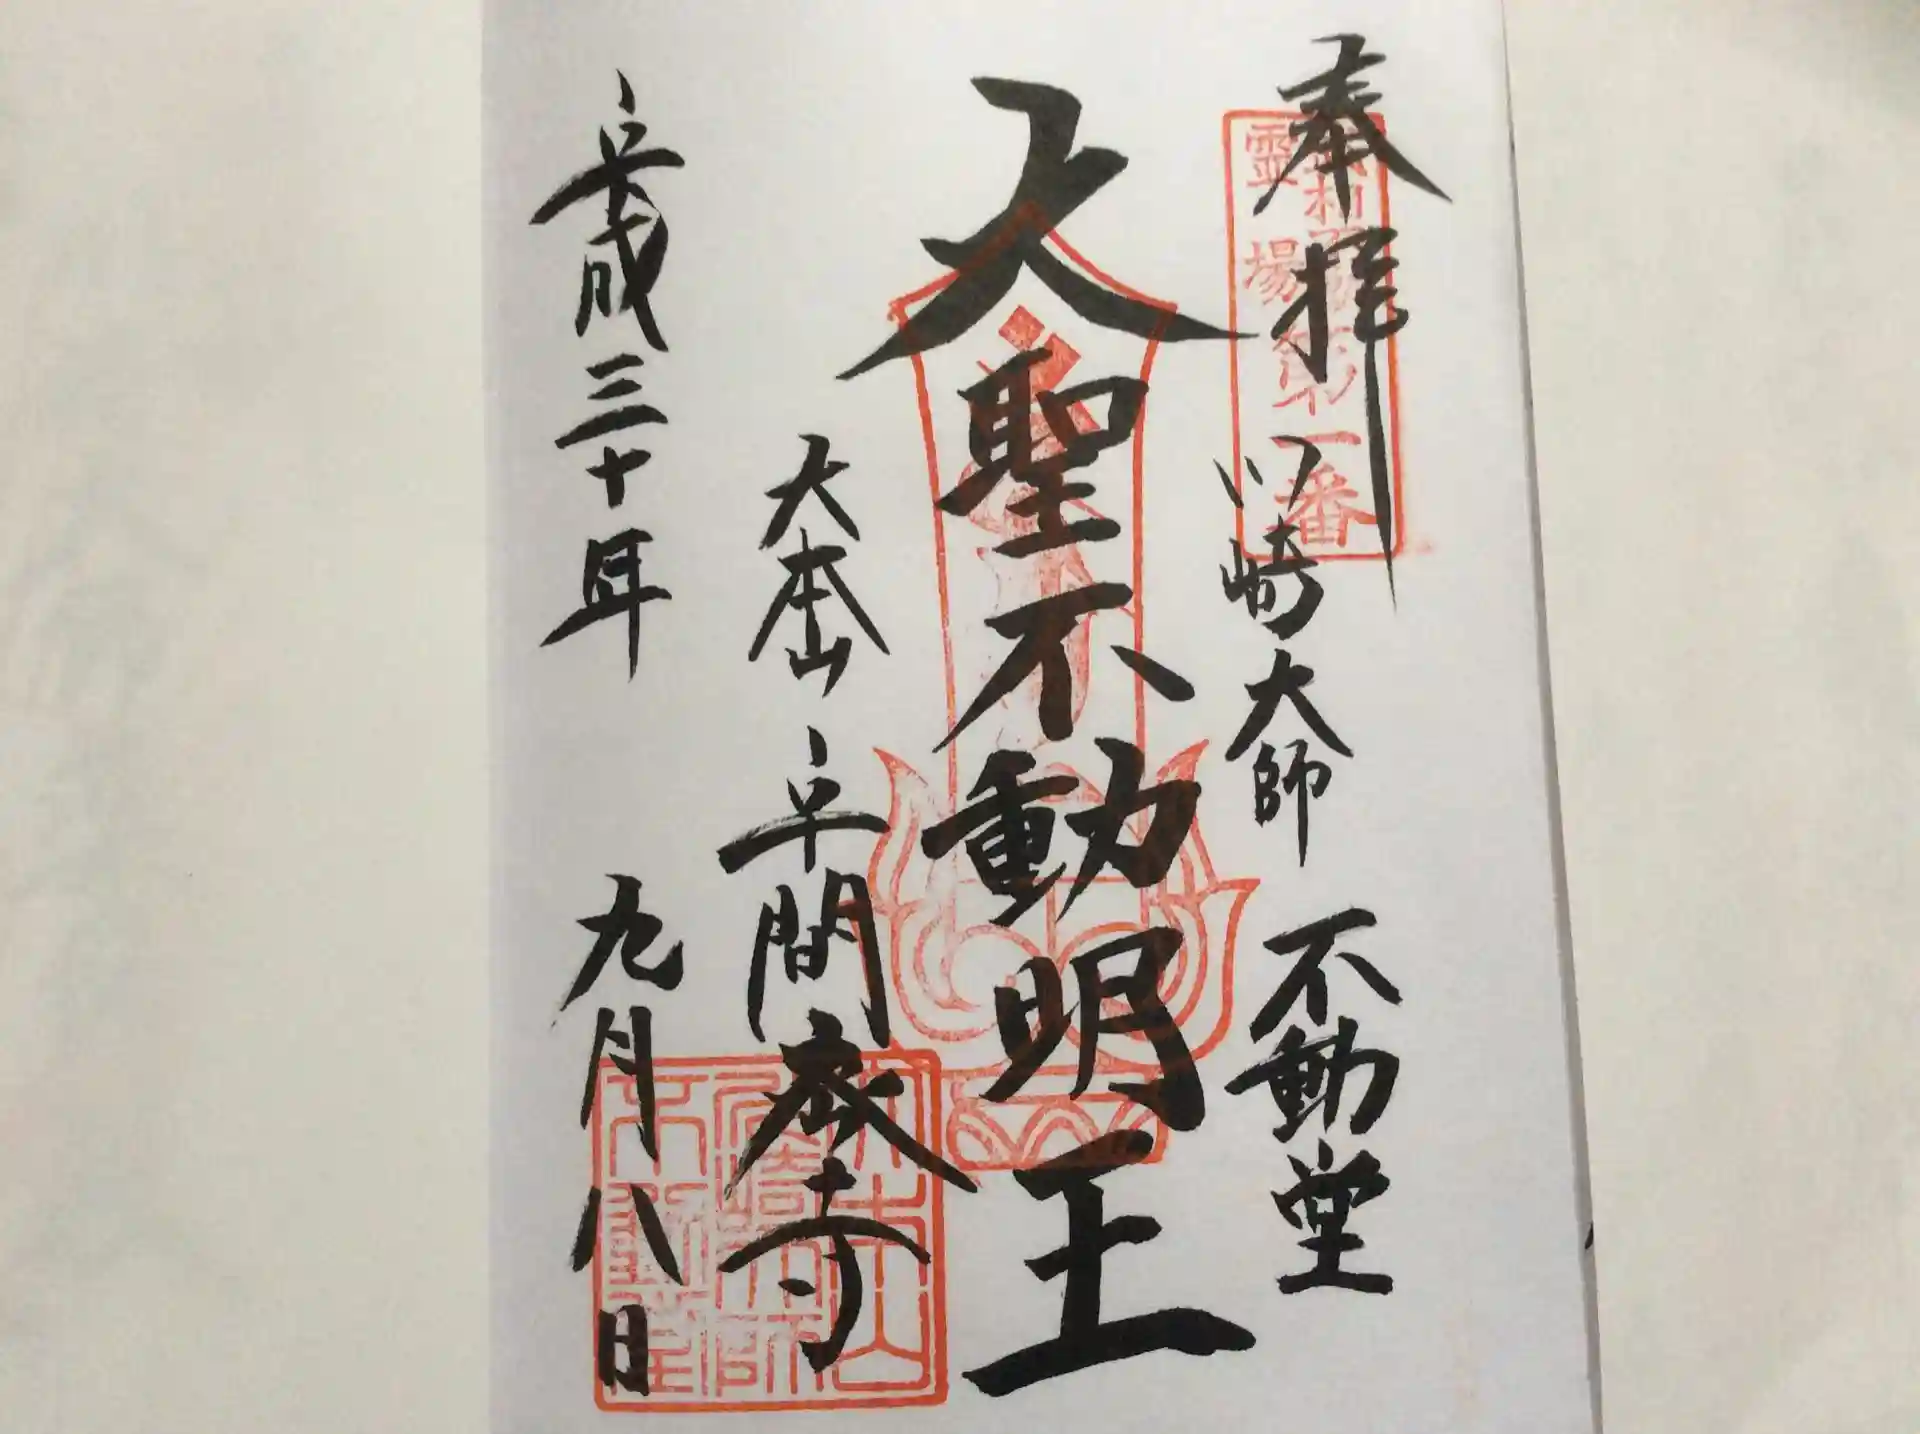 奉拝
川崎大師 不動堂
大聖不動明王
大本山 平間寺
平成三十年 九月八日
霊場
第一番